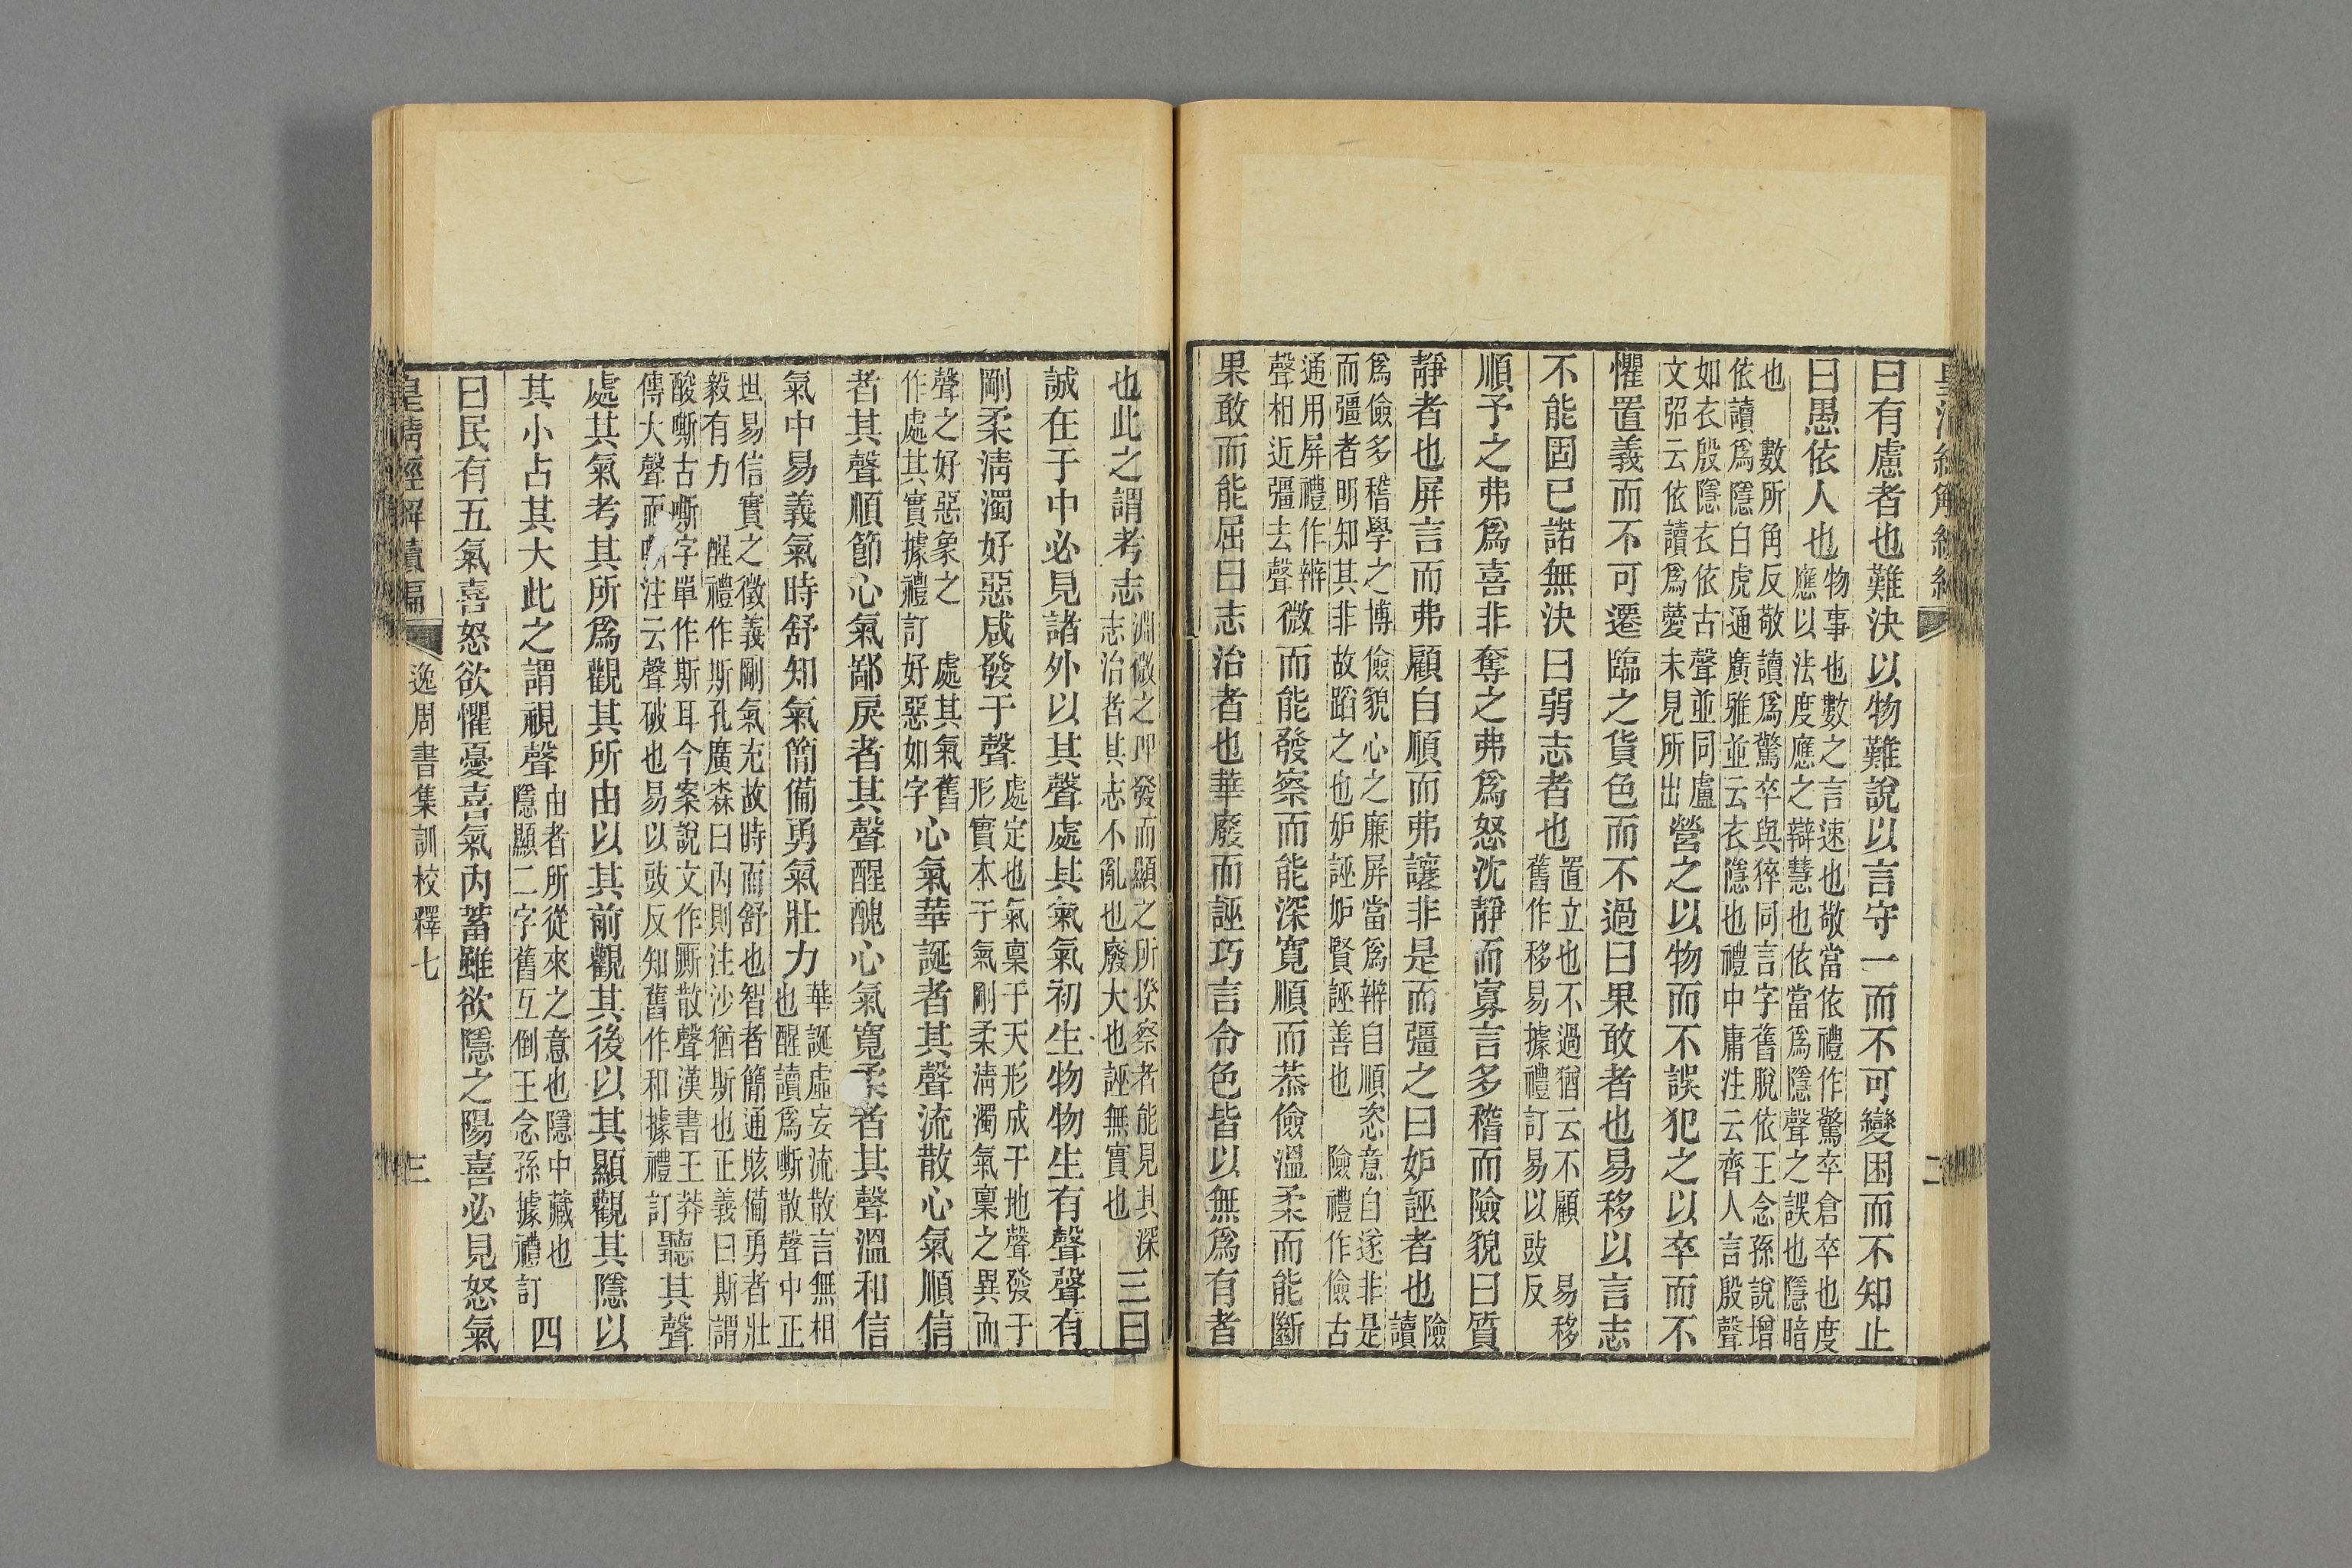 曰有慮者也難決以物難說以言守一而不可變困而不知止
曰愚依人也物事也數之言速也敬當依禮作驚卒倉卒也度應以法度應之辯慧也依當爲隱聲之誤也隱暗
也 數所角反敬讀爲驚卒與猝同言字舊脫依王念孫說增依讀爲隱白虎通廣雅並云衣隱也禮中庸注云齊人言殷聲
如衣殷隱衣依古聲並同盧文弨云依讀爲薆未見所出營之以物而不誤犯之以卒而不
懼置義而不可遷臨之貨色而不過曰果敢者也易移以言志
不能固已諾無決曰弱志者也置立也不過猶云不顧 易移舊作移易據禮訂易以豉反
順予之弗爲喜非奪之弗爲怒沈靜而寡言多稽而險貌曰質
靜者也屏言而弗顧自順而弗讓非是而彊之曰妒誣者也險讀
爲儉多稽學之博儉貌心之廉屏當爲辨自順恣意自遂非是而彊者明知其非故蹈之也妒誣妒賢誣善也 險禮作儉古
通用屏禮作辨聲相近彊去聲微而能發察而能深寬順而恭儉溫柔而能斷
果敢而能屈曰志治者也華廢而誣巧言令色皆以無爲有者
二
也此之謂考志淵微之理發而顯之所揆察者能見其深志治者其志不亂也廢大也誣無實也三曰
誠在于中必見諸外以其聲處其氣氣初生物物生有聲聲有
剛柔清濁好惡咸發于聲處定也氣稟于天形成于地聲發于形實本于氣剛柔清濁氣稟之異而
聲之好惡象之 處其氣舊作處其實據禮訂好惡如字心氣華誕者其聲流散心氣順信
者其聲順節心氣鄙戾者其聲醒醜心氣寬柔者其聲溫和信
氣中易義氣時舒知氣簡備勇氣壯力華誕虛妄流散言無相也醒讀爲嘶散聲中正
坦易信實之徵義剛氣充故時而舒也智者簡通賅備勇者壯毅有力 醒禮作斯孔廣森曰內則注沙猶斯也正義曰斯謂
酸嘶古嘶字單作斯耳今案說文作㒋散聲漢書王莽傳大聲而注云聲破也易以豉反知舊作和據禮訂聽其聲
處其氣考其所爲觀其所由以其前觀其後以其顯觀其隱以
其小占其大此之謂視聲由者所從來之意也隱中藏也隱顯二字舊互倒王念孫據禮訂四
曰民有五氣喜怒欲懼憂喜氣內蓄雖欲隱之陽喜必見怒氣
皇清經解續編 逸周書集訓校釋七 三